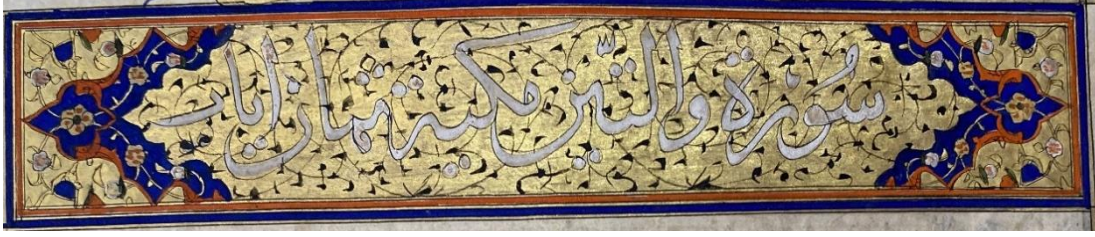 سورة والتين مكية ثمان ايات